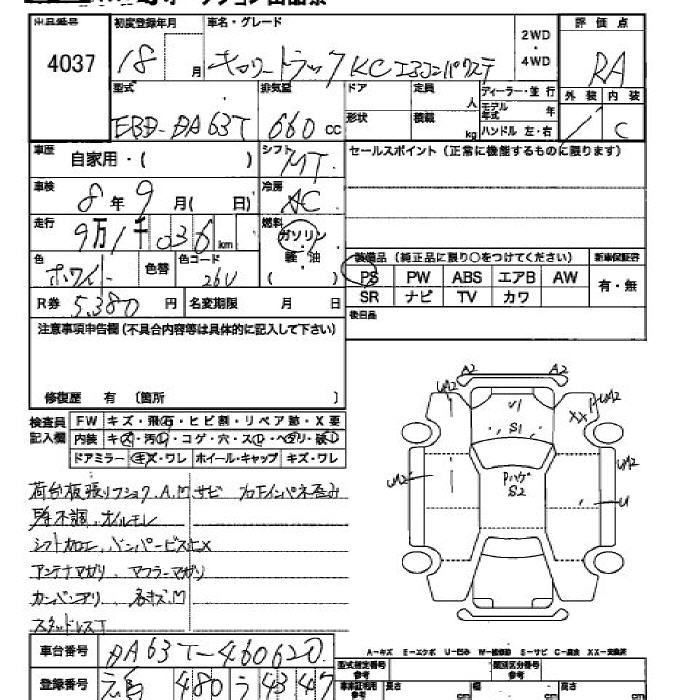 出品番号 初度登録年月 車名・グレード 2WD・4WD 評価点
4037 18 月 キャリートラック KC エアコンパワステ RA
型式 排気量 ドア 定員 人 ディーラー・並行 外装 内装
EBD-DA63T 660 cc 形状 積載 kg モデル年式 年 ハンドル 左・右 C
車歴 自家用・( ) シフト MT セールスポイント(正常に機能するものに限ります)
車検 8年9月( 日) 冷房 AC
走行 9万1千036km 燃料 ガソリン 軽・油 ( )
色 ホワイト 色替 色コード 26U
装備品(純正品に限り○をつけてください) 新車保証書
PS PW ABS エアB AW 有・無
SR ナビ TV カワ
R券 5,380円 名変期限 月 日
後日品
注意事項申告欄(不具合内容等は具体的に記入して下さい)
修復歴 有 〔箇所 〕
検査員記入欄
FW キズ・飛石・ヒビ割・リペア跡・X要
内装 キズ・汚レ・コゲ・穴・スレ・ヘタリ・破レ
ドアミラー キズ・ワレ ホイール・キャップ キズ・ワレ
A2 A2
UA2 U1 XX UA2
S1
UA2 Pハゲ UA2
S2 U
荷台板張リフショク.A.Mサビ フロアインパネ歪み
不調.オイルモレ
シフトカエロ、バンパービス止X
アンテナマガリ、マフラーマガリ
スタッドレスT
A-キズ E-エクボ U-凹み W-補修跡 S-サビ C-腐食 XX-交換済
車台番号 DA63T-460620
型式指定番号 参考 類別区分番号 参考
登録番号 広島 480 う 4347
長さ cm 幅 cm 高さ cm